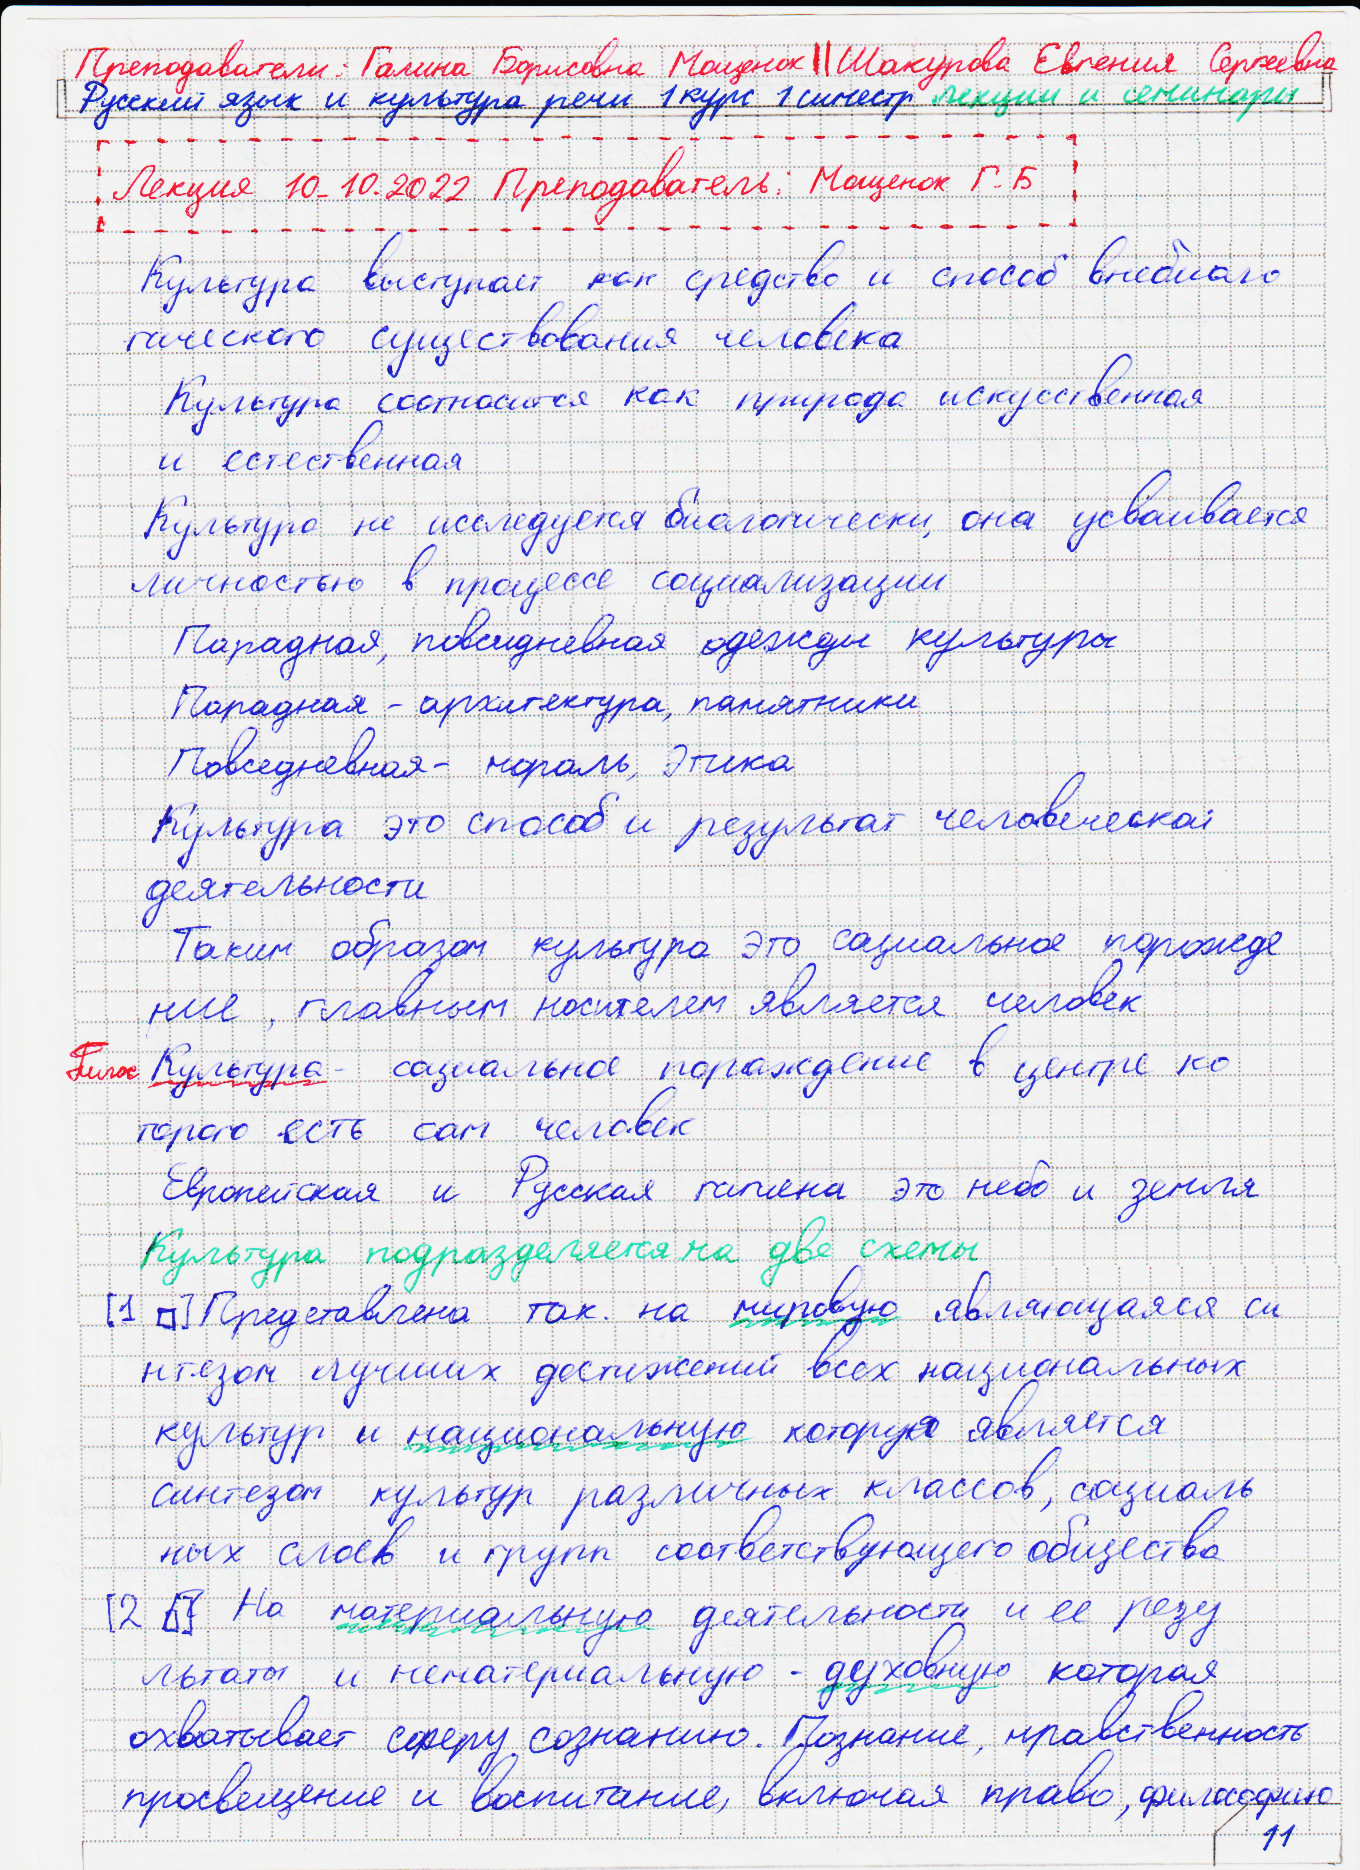 Преподаватели: Галина Борисовна Мощенок || Шакурова Евгения Сергеевна
Русский язык и культура речи 1 курс 1 симестр лекции и семинары
Лекция 10.10.2022 Преподаватель: Мощенок Г.Б
Культура выступает как средство и способ внебиоло
гического существования человека
Культура соотносится как природа искусственная
и естественная
Культура не исследуется биологически, она усваивается
личностью в процессе социализации
Парадная, повседневная одежды культуры
Парадная - архитектура, памятники
Повседневная - мораль, этика
Культура это способ и результат человеческой
деятельности
Таким образом культура это социальное порожде
ние, главным носителем является человек
Культура - социальное пораждение в центре ко
торого есть сам человек
Европейская и Русская это небо и земля
Культура подразделяется на две схемы
[1 □] Представлена так. на мировую являющаяся си
нтезом лучших достижений всех национальных
культур и национальную которую является
синтезом культур различных классов, социаль
ных слоев и групп соответствующего общества
[2 □] На материальную деятельности и ее резу
льтаты и нематериальную - духовную которая
охватывает сферу сознанию. Познание, нравственность
просвещение и воспитание, включая право, философию
11